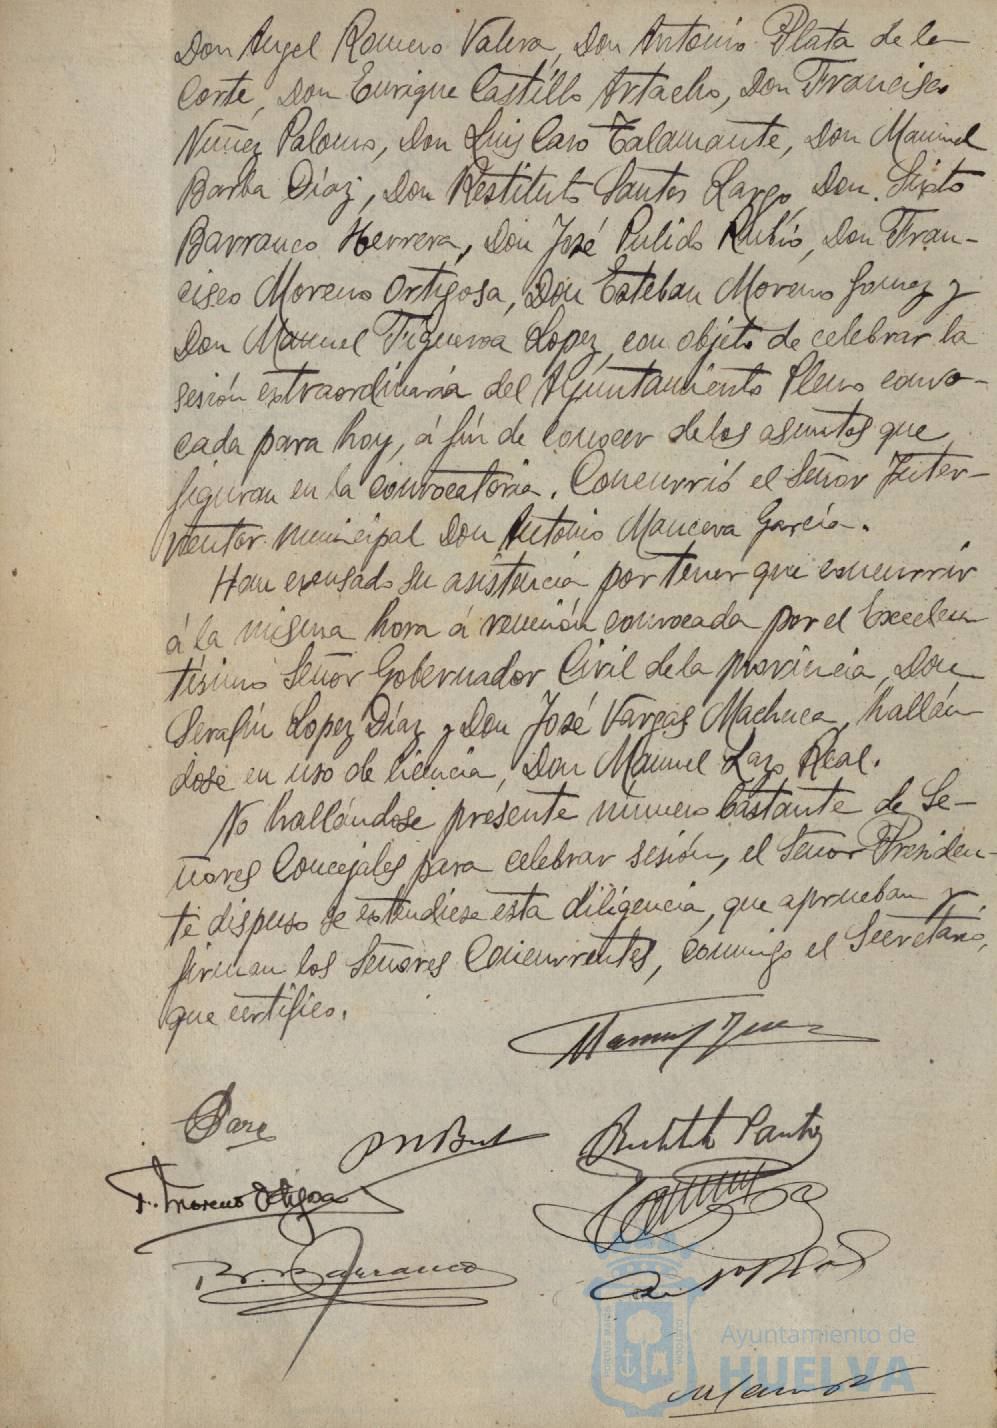 Don Angel Romero Valera, Don Antonio Plata de la
Corte, Don Enrique Castillo Artacho, Don Francisco
Nuñez Palomo, Don Luis Caro Talamante, Don Manuel
Barba Díaz, Don Restituto Santos Largo, Don Sixto
Barranco Herrera, Don José Pulido Rubio, Don Fran-
cisco Moreno Ortigosa, Don Esteban Moreno Gomez y
Don Manuel Figueroa Lopez, con objeto de celebrar la
sesión extraordinaria del Ayuntamiento Pleno convo-
cada para hoy, á fin de conocer de los asuntos que
figuran en la convocatoria. Concurrió el Señor Inter-
ventor municipal Don Antonio Mancera García.
Han excusado su asistencia por tener que concurrir
á la misma hora á reunión convocada por el Excelen
tísimo Señor Gobernador Civil de la provincia, Don
Serafín Lopez Díaz y Don José Vargas Machuca, hallán
dose en uso de licencia, Don Manuel Lazo Real.
No hallándose presente número bastante de Se-
ñores Concejales para celebrar sesión, el Señor Presiden-
te dispuso se extendiese esta diligencia, que aprueban y
firman los Señores Concurrentes, conmigo el Secretario,
que certifico.
Restituto Santos
F. Moreno Ortigosa
Barranco
Ayuntamiento de
HUELVA